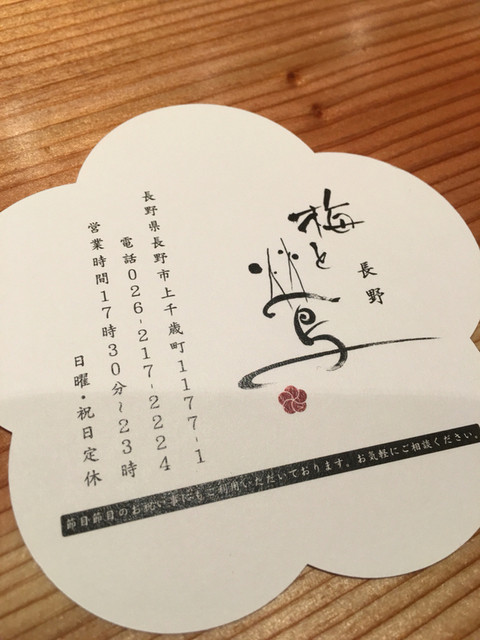 長野
梅と鶯
長野県長野市上千歳町1177-1
電話026-217-2224
営業時間17時30分~23時
日曜・祝日定休
節目節目のお祝い事にもご利用いただいております。お気軽にご相談ください。